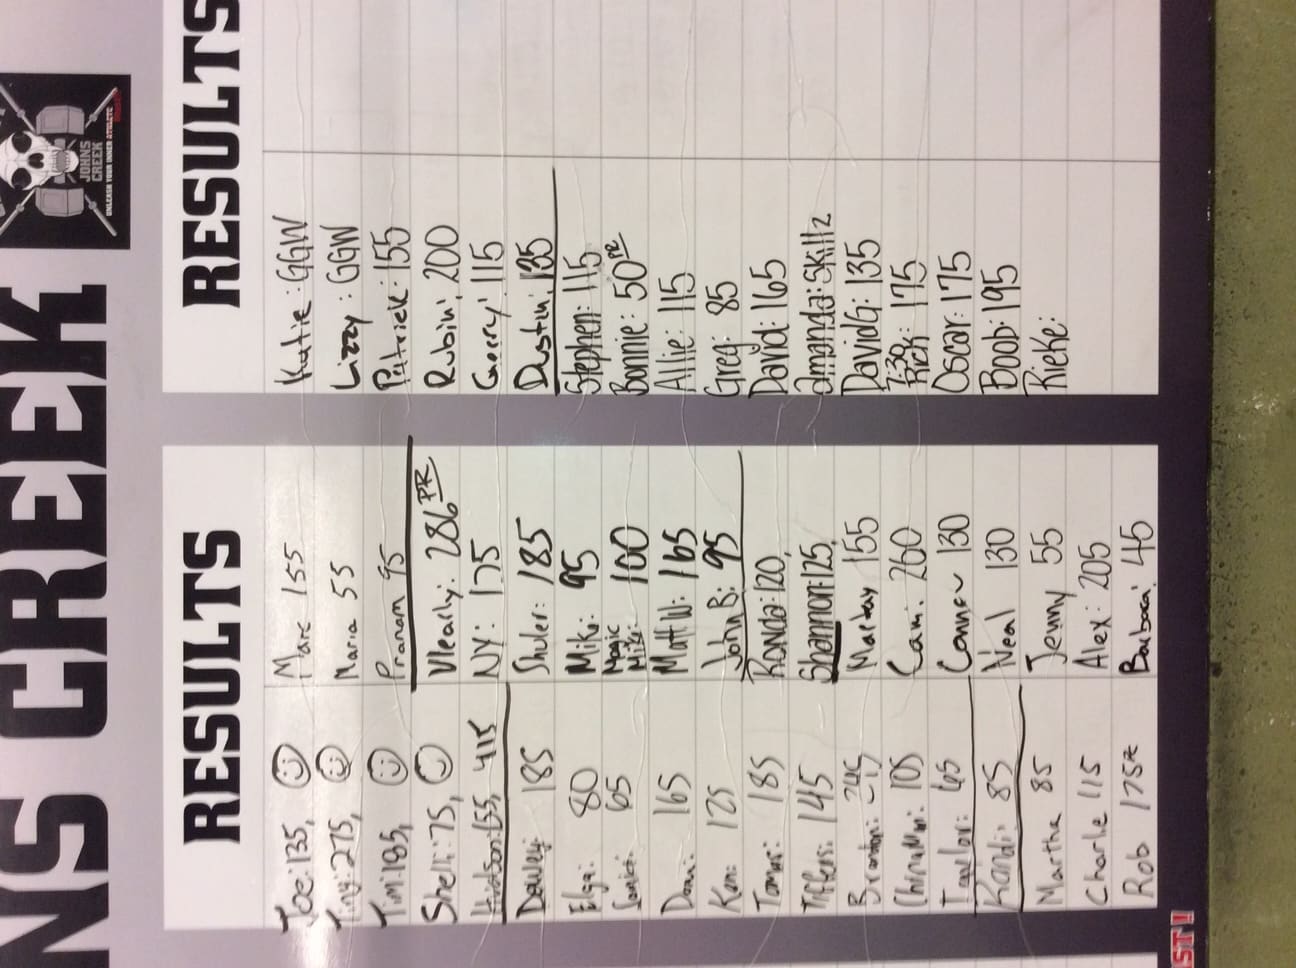 NS CREEK
JOHNS
CREEK
UNLEASH YOUR INNER ATHLETE
RESULTS
Joe: 135,
Tiny: 275,
Tim: 185,
Shelli: 75,
Hudson: 155, 415
Dawley: 185
Elga: 80
65
Dani: 165
Ken: 125
185
Tiffers: 145
Brandon:
105
Taylor: 65
Kandi: 85
Martha 85
Charlie 115
Rob 175
Marc 155
Maria 55
Pranam 95
Weally: 286 PR
NY: 175
Shuler: 185
Mike: 95
Magic
Mike: 100
Matt W: 165
John B: 95
Ronda: 120
Shannon: 125
155
Cam: 260
Connor 130
Neal 130
Jenny 55
Alex: 205
45
RESULTS
Katie: GGW
Lizzy: GGW
Patrick: 155
Rubin: 200
Gerry: 115
Dustin: 135
Stephen: 115
Bonnie: 50 PR
Allie: 115
Greg: 85
David: 165
Amanda: Skillz
DavidG: 135
7:30
Rich: 175
Oscar: 175
Boob: 195
Rieke:
ST!